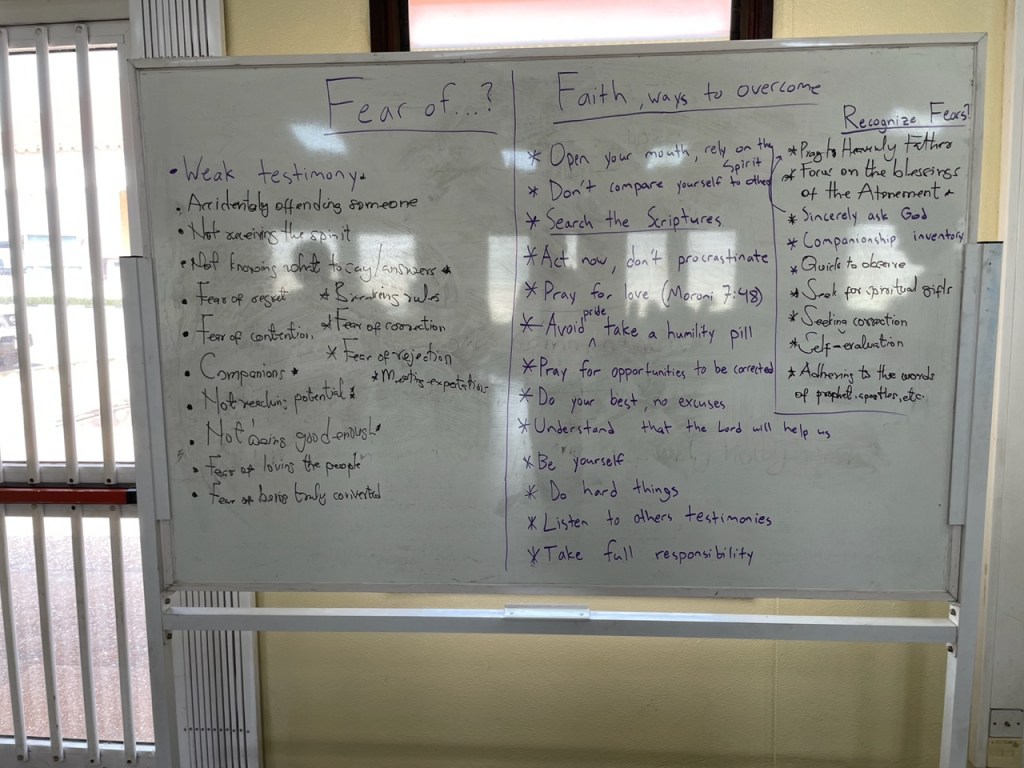 Fear of...?
• Weak testimony.
• Accidently offending someone
• Not receiving the spirit
• Not knowing what to say/answers *
• Fear of regret * Breaking rules
• Fear of contention, * Fear of correction
* Fear of rejection
• Companions * * Meeting expectations
• Not reaching potential *
• Not being good enough *
• Fear of loving the people
• Fear of being truly converted
Faith, ways to overcome
* Open your mouth, rely on the
spirit
* Don't compare yourself to others
* Search the Scriptures
* Act now, don't procrastinate
* Pray for love (Moroni 7:48)
pride
* Avoid ^ take a humility pill
* Pray for opportunities to be corrected
* Do your best, no excuses
* Understand that the Lord will help us
* Be yourself
* Do hard things
* Listen to others testimonies
* Take full responsibility
Recognize Fears?
* Pray to Heavenly Father
* Focus on the blessings
of the Atonement *
* Sincerely ask God
* Companionship inventory
* Quick to observe
* Seek for spiritual gifts
* Seeking correction
* Self-evaluation
* Adhering to the words
of prophet, apostles, etc.